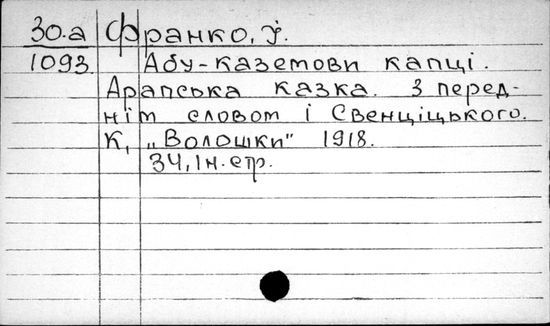 30.а Франко, І.
1093. Абу-каземови капці.
Арапська казка. З перед-
нім словом і Свенціцького.
К, „Волошки" 1918.
34, 1 н. стр.